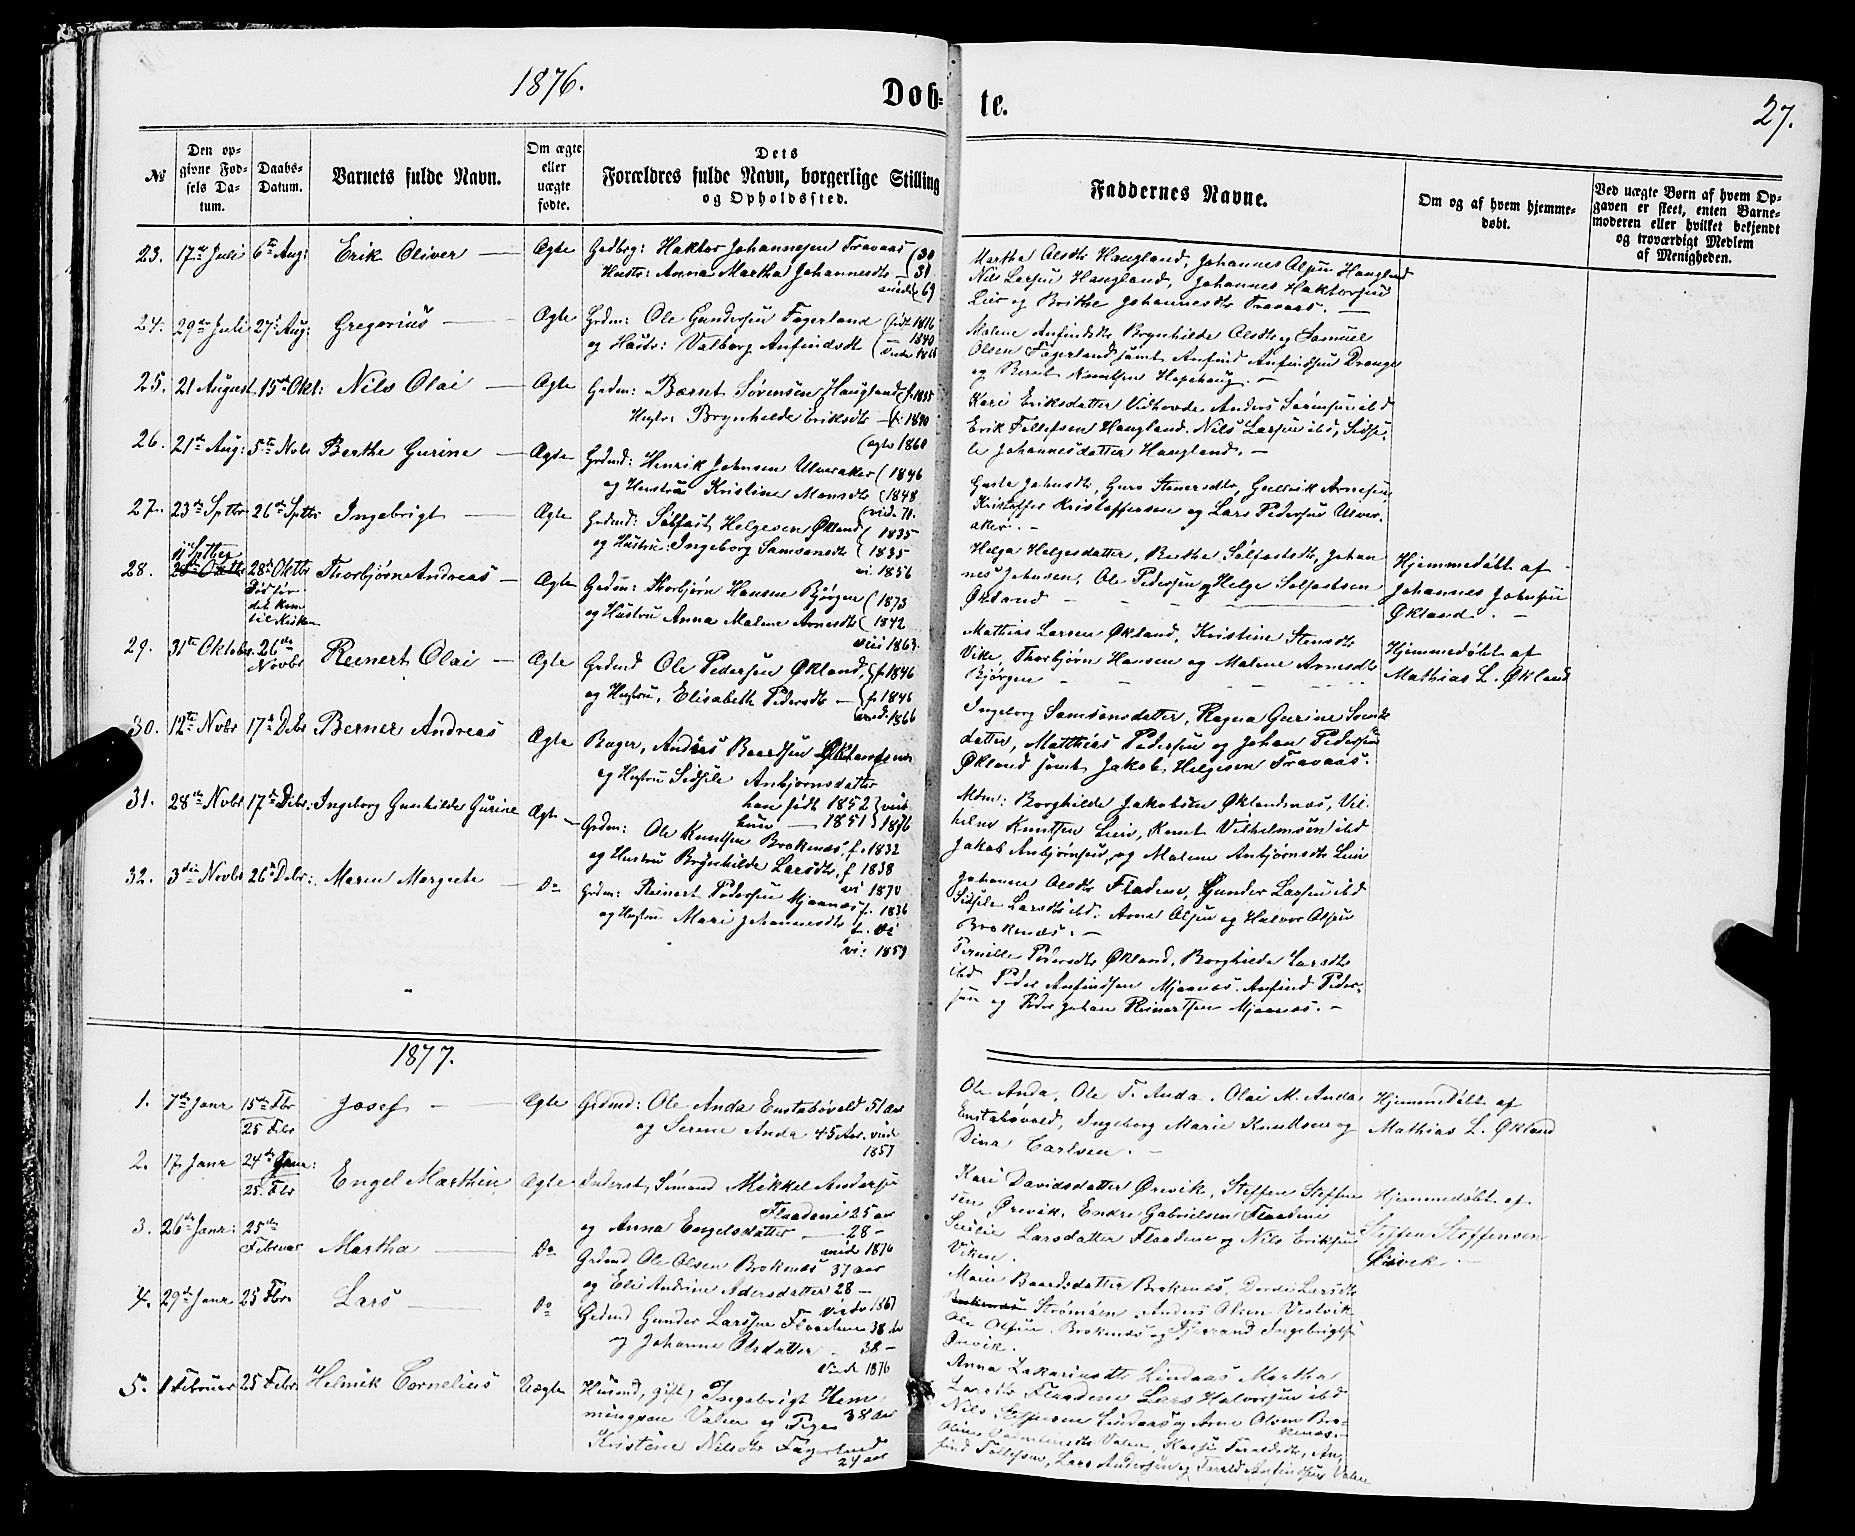 1876.
Døb-
te.
27.
№
Den op-
givne Fød-
sels Da-
tum.
Daabs-
Datum.
Barnets fulde Navn.
Om ægte
eller
uægte
fødte.
Dets
Forældres fulde Navn, borgerlige Stilling
og Opholdssted.
Faddernes Navne.
Om og af hvem hjemme-
døbt.
Ved uægte Børn af hvem Op-
gaven er skeet, enten Barne-
moderen eller hvilket bekjendt
og troværdigt Medlem
af Menigheden.
23. 17de Juli 6te Aug: Erik Oliver — Ægte
Haktor Johannesen Travaas (30
Hustr: Anna Martha Johannesdtr — 31
viede (69
Martha Olsdtr Haugland, Johannes Olsen Haugland
Nils Larsen Haugland, Johannes Haktorsen
Lier og Brithe Johannesdtr Travaas. —
24. 29de Juli 27de Aug: Gregorius — Ægte
Grdm: Ole Gundersen Fagerland (født 1816
og Hustr: Valborg Anfindsdtr ( — 1840
Malene Anfindsdtr Brynhilde Olsdtr, Samuel
Olsen Fagerland samt Anfind Anfindsen Drange
og Bernt Knutsen Hopehaug. —
25. 21 August 15de Okt: Nils Olai — Ægte
Grdm: Bærnt Sørensen Haugland (f. 1835
Hustr: Brynhilde Eriksdtr — f. 1840
(ægtv 1860
Kari Eriksdatter Vidhovde Anders Sørensen ibd
Erik Tollefsen Haugland. Nils Larsen ibd, Sidse-
le Johannesdatter Haugland. —
26. 21de Aug: 5te Novbr Berthe Gurine — Ægte
Grdmd: Henrik Johnsen Ulveraker (1846
og Hustru Kristine Monsdtr (1848
(vid. 71.
Johnsdtr, Guro Stenersdtr, Arnesen
Kristoffer Kristoffersen og Lars Pedersen Ulver-
aker. —
27. 23de Septbr 26de Septbr Ingebrigt — Ægte
Grdmd: Solfast Helgesen Økland (1835
og Hustru: Ingeborg Samsonsdtr (1835
vi. 1856
Helga Helgesdatter, Berthe Solfastsdtr, Johan-
nes Johnsen, Ole Pedersen og Helge Solfastsen
Økland — — —
Hjemmedøbt af
Johannes Johnsen
Økland. —
28. Septber 28de Oktbr Thorbjørn Andreas — Ægte
Død før
det kom
til Kirken
Grdm: Thorbjørn Hansen Bjørgen (1873
og Hustru Anna Malene Arnesdtr (1842
viei 1863.
Mathias Larsen Økland, Kristine Stensdtr
Vike, Thorbjørn Hansen og Malene Arnesdtr
Bjørgen — — — —
Hjemmedøbt af
Mathias L. Økland
29. 31te Oktober 26de
Novbr Reinert Olai — Ægte
Grdmd Ole Pedersen Økland, f. 1846
og Hustru, Elisabeth Pedersdtr — f. 1846
vied. 1866
Ingeborg Samsonsdatter, Ragna Gurine Svends-
datter, Matthias Pedersen og Johan Pedersen
Økland samt Jakob Helgesen Travaas.
30. 12te Novbr 17de Debr Berner Andreas Ægte
Bager, Anders Baardsen Øklandsnæs
og Hustru Sidsele Anbjørnsdatter
han født 1852 } vied
hun — 1851 } 1876
Mdm: Borghilde Jakobsen Øklandnæs, Vil-
helm Knutsen Lier, Knut Vilhelmsen ibd
Jakob Anbjørnsen, og Malene Anbjørnsdtr Lier
31. 28de Novbr 17de Debr: Ingeborg Gunhilde Gurine Ægte —
Grdm: Ole Knutsen Brokenæs, f. 1832
og Hustru Brynhilde Larsdtr, f 1838
vi 1870
Johanne Olsdtr Fladene, Gunder Larsen ibd
Sidsele Larsdtr ibd. Arne Olsen og Halvor Olsen
Brokenæs. —
32. 3die Novbr 26de Debr: Maren Margrete — Do
Grdm: Reinert Pedersen Mjaanæs f. 1836
og Hustru Mari Johannesdtr
vi: 1859
Pernille Pedersdtr Økland, Borghilde Larsdtr
ibd Peder Anfindsen Mjaanæs. Anfind Peder-
sen og Peder Johan Reinertsen Mjaanæs. —
1877.
1. 7de Janr 15de Fbr
25 Febr Josef — Ægte
Grdmd: Ole Anda Eustabøvold 51 Aar
og Serene Anda 45 Aar. vied
1857
Ole Anda, Ole T. Anda. Olai M. Anda
Eustabøvold, Ingeborg Marie Knudsen og
Dina Carlsen. —
Hjemmedøbt af
Mathias L. Økland
2. 17. Janr 24de Janr:
25. Fbr Engel Marthin Ægte
Inderst, Sømand Mikkel Andersen
Fladene 25 aar
og Anna Engelsdatter — 28 —
vied 1876
Kari Davidsdatter Ørevik, Steffen Steffen-
sen Ørevik, Endre Gabrielsen Fladene
Larsdatter Fladene og Nils Eriksen
Viken.
Hjemmedøbt af
Steffen Steffensen
Ørevik. —
3. 26de Janr: 25de
Februar Martha — Do
Grdmd Ole Olsen Brokenæs 37 aar
og Eli Andrine Adersdatter 28 —
viede 1867
Marie Baardsdatter Brokenæs, Dorde Larsdtr
Strømøen Anders Olsen Vestvik
Ole Olsen Brokenæs og Ingebrigtsen
Ørevik.
4. 29de Janr 25 Fbr. Lars — Do
Grdmd Gunder Larssen Fladene 38 Aar
og Johanne Olsdatter — 38 —
viede 1876
Anna Zakariasdtr Lindaas Martha
Larsdtr Fladene Lars Halvorsen ibd
Nils Steffensen Lindaas og Arne Olsen Bro-
kenæs. —
5. 1 Februar 25 Febr Helmik Cornelius Uægte
Husmd, gift, Ingebrigt Hem-
mingsen Valen og Pige 38 Aar
Kristine Nilsdtr Fagerland
24 aar
Valen, Kasja Taraldsdtr, An-
find Tollefsen, Lars Andersen og Tarald Anfindsen Valen